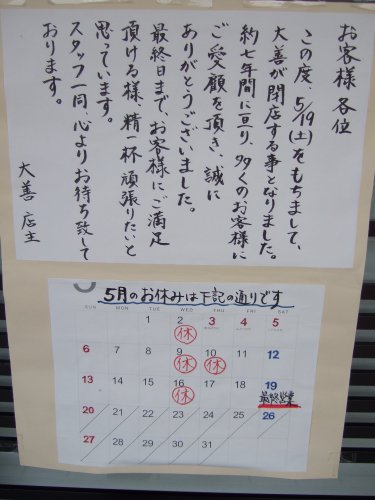 お客様各位
この度、5/19(土)をもちまして、
大善が閉店する事となりました。
約七年間に亘り、多くのお客様に
ご愛顧を頂き、誠に
ありがとうございました。
最終日まで、お客様にご満足
頂ける様、精一杯頑張りたいと
思っています。
スタッフ一同、心よりお待ち致して
おります。
大善 店主
5月のお休みは下記の通りです
SUN MON TUE WED THU FRI SAT
1 2 3 4 5
休
6 7 8 9 10 11 12
休 休
13 14 15 16 17 18 19
休 最終営業
20 21 22 23 24 25 26
27 28 29 30 31